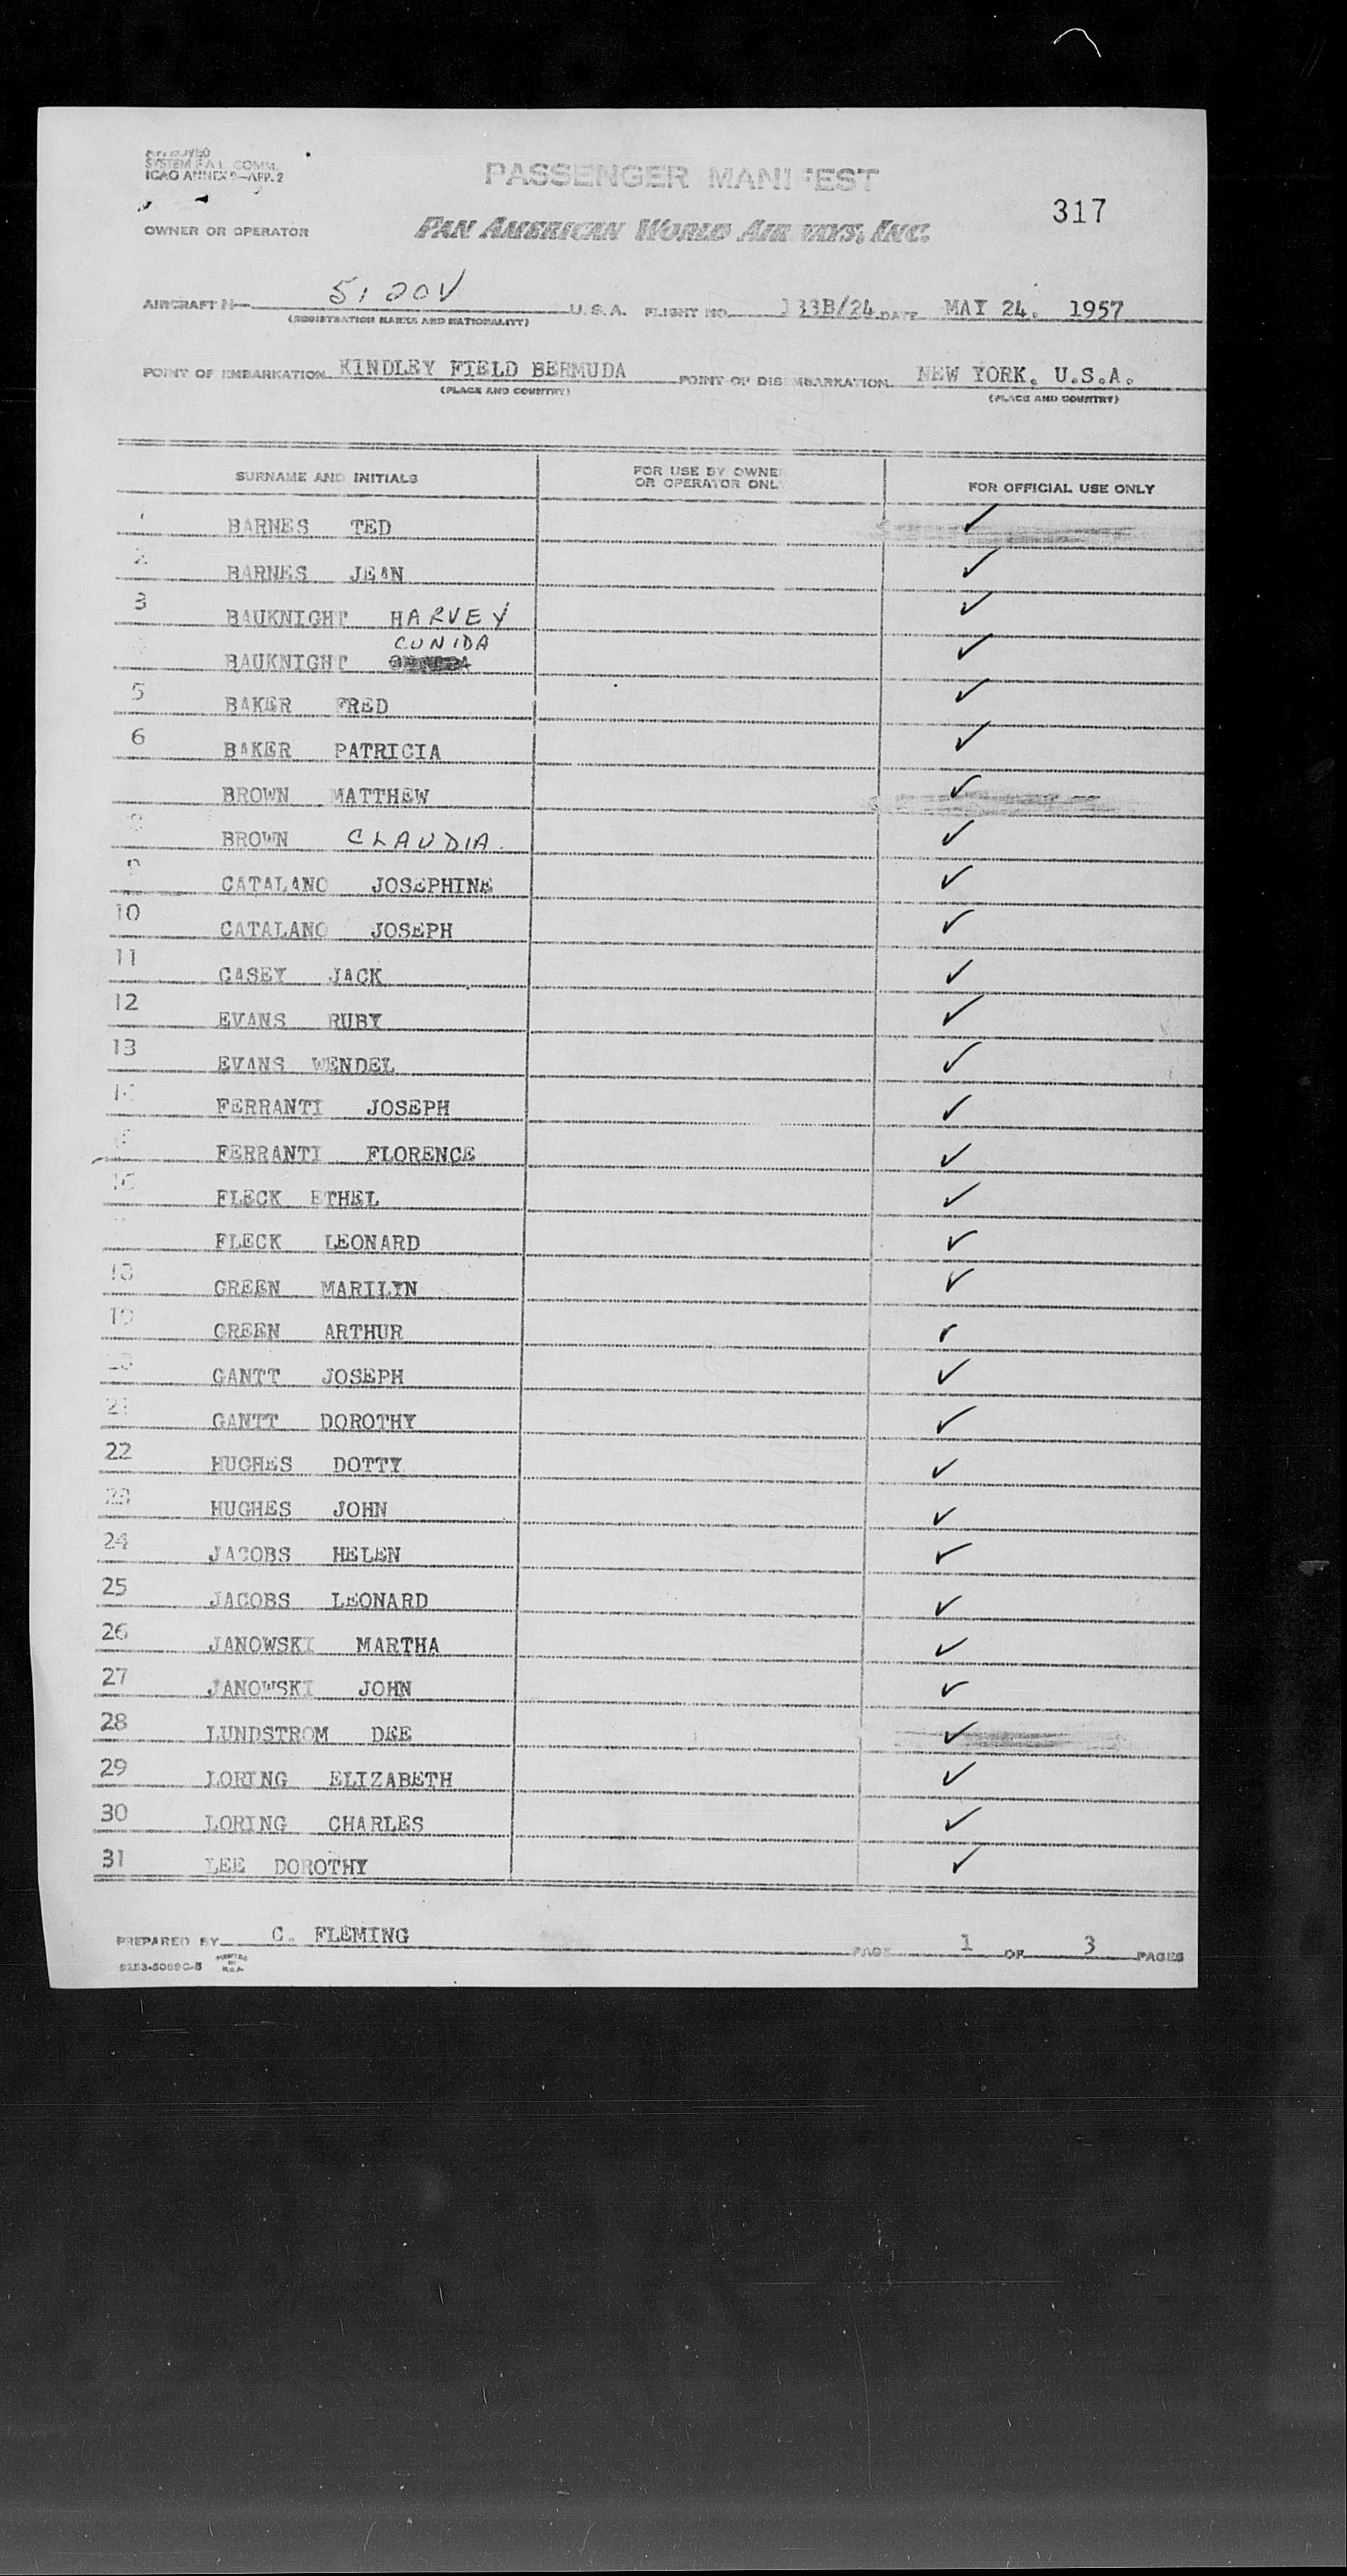 APPROVED
SYSTEM F.A.L. COMM.
ICAO ANNEX 9—APP. 2
PASSENGER MANIFEST
317
OWNER OR OPERATOR PAN AMERICAN WORLD AIRWAYS, INC.
AIRCRAFT N— 5120V U.S.A. FLIGHT NO. 133B/24 DATE MAY 24. 1957
(REGISTRATION MARKS AND NATIONALITY)
POINT OF EMBARKATION KINDLEY FIELD BERMUDA POINT OF DISEMBARKATION NEW YORK. U.S.A.
(PLACE AND COUNTRY) (PLACE AND COUNTRY)
SURNAME AND INITIALS FOR USE BY OWNER OR OPERATOR ONLY FOR OFFICIAL USE ONLY
BARNES TED ✓
2 BARNES JEAN ✓
3 BAUKNIGHT HARVEY ✓
BAUKNIGHT CUNIDA ✓
5 BAKER FRED ✓
6 BAKER PATRICIA ✓
BROWN MATTHEW ✓
8 BROWN CLAUDIA. ✓
9 CATALANO JOSEPHINE ✓
10 CATALANO JOSEPH ✓
11 CASEY JACK ✓
12 EVANS RUBY ✓
13 EVANS WENDEL ✓
14 FERRANTI JOSEPH ✓
FERRANTI FLORENCE ✓
16 FLECK ETHEL ✓
FLECK LEONARD ✓
18 GREEN MARILYN ✓
19 GREEN ARTHUR ✓
20 GANTT JOSEPH ✓
21 GANTT DOROTHY ✓
22 HUGHES DOTTY ✓
23 HUGHES JOHN ✓
24 JACOBS HELEN ✓
25 JACOBS LEONARD ✓
26 JANOWSKI MARTHA ✓
27 JANOWSKI JOHN ✓
28 LUNDSTROM DEE ✓
29 LORING ELIZABETH ✓
30 LORING CHARLES ✓
31 LEE DOROTHY ✓
PREPARED BY C. FLEMING PAGE 1 OF 3 PAGES
PRINTED IN U.S.A.